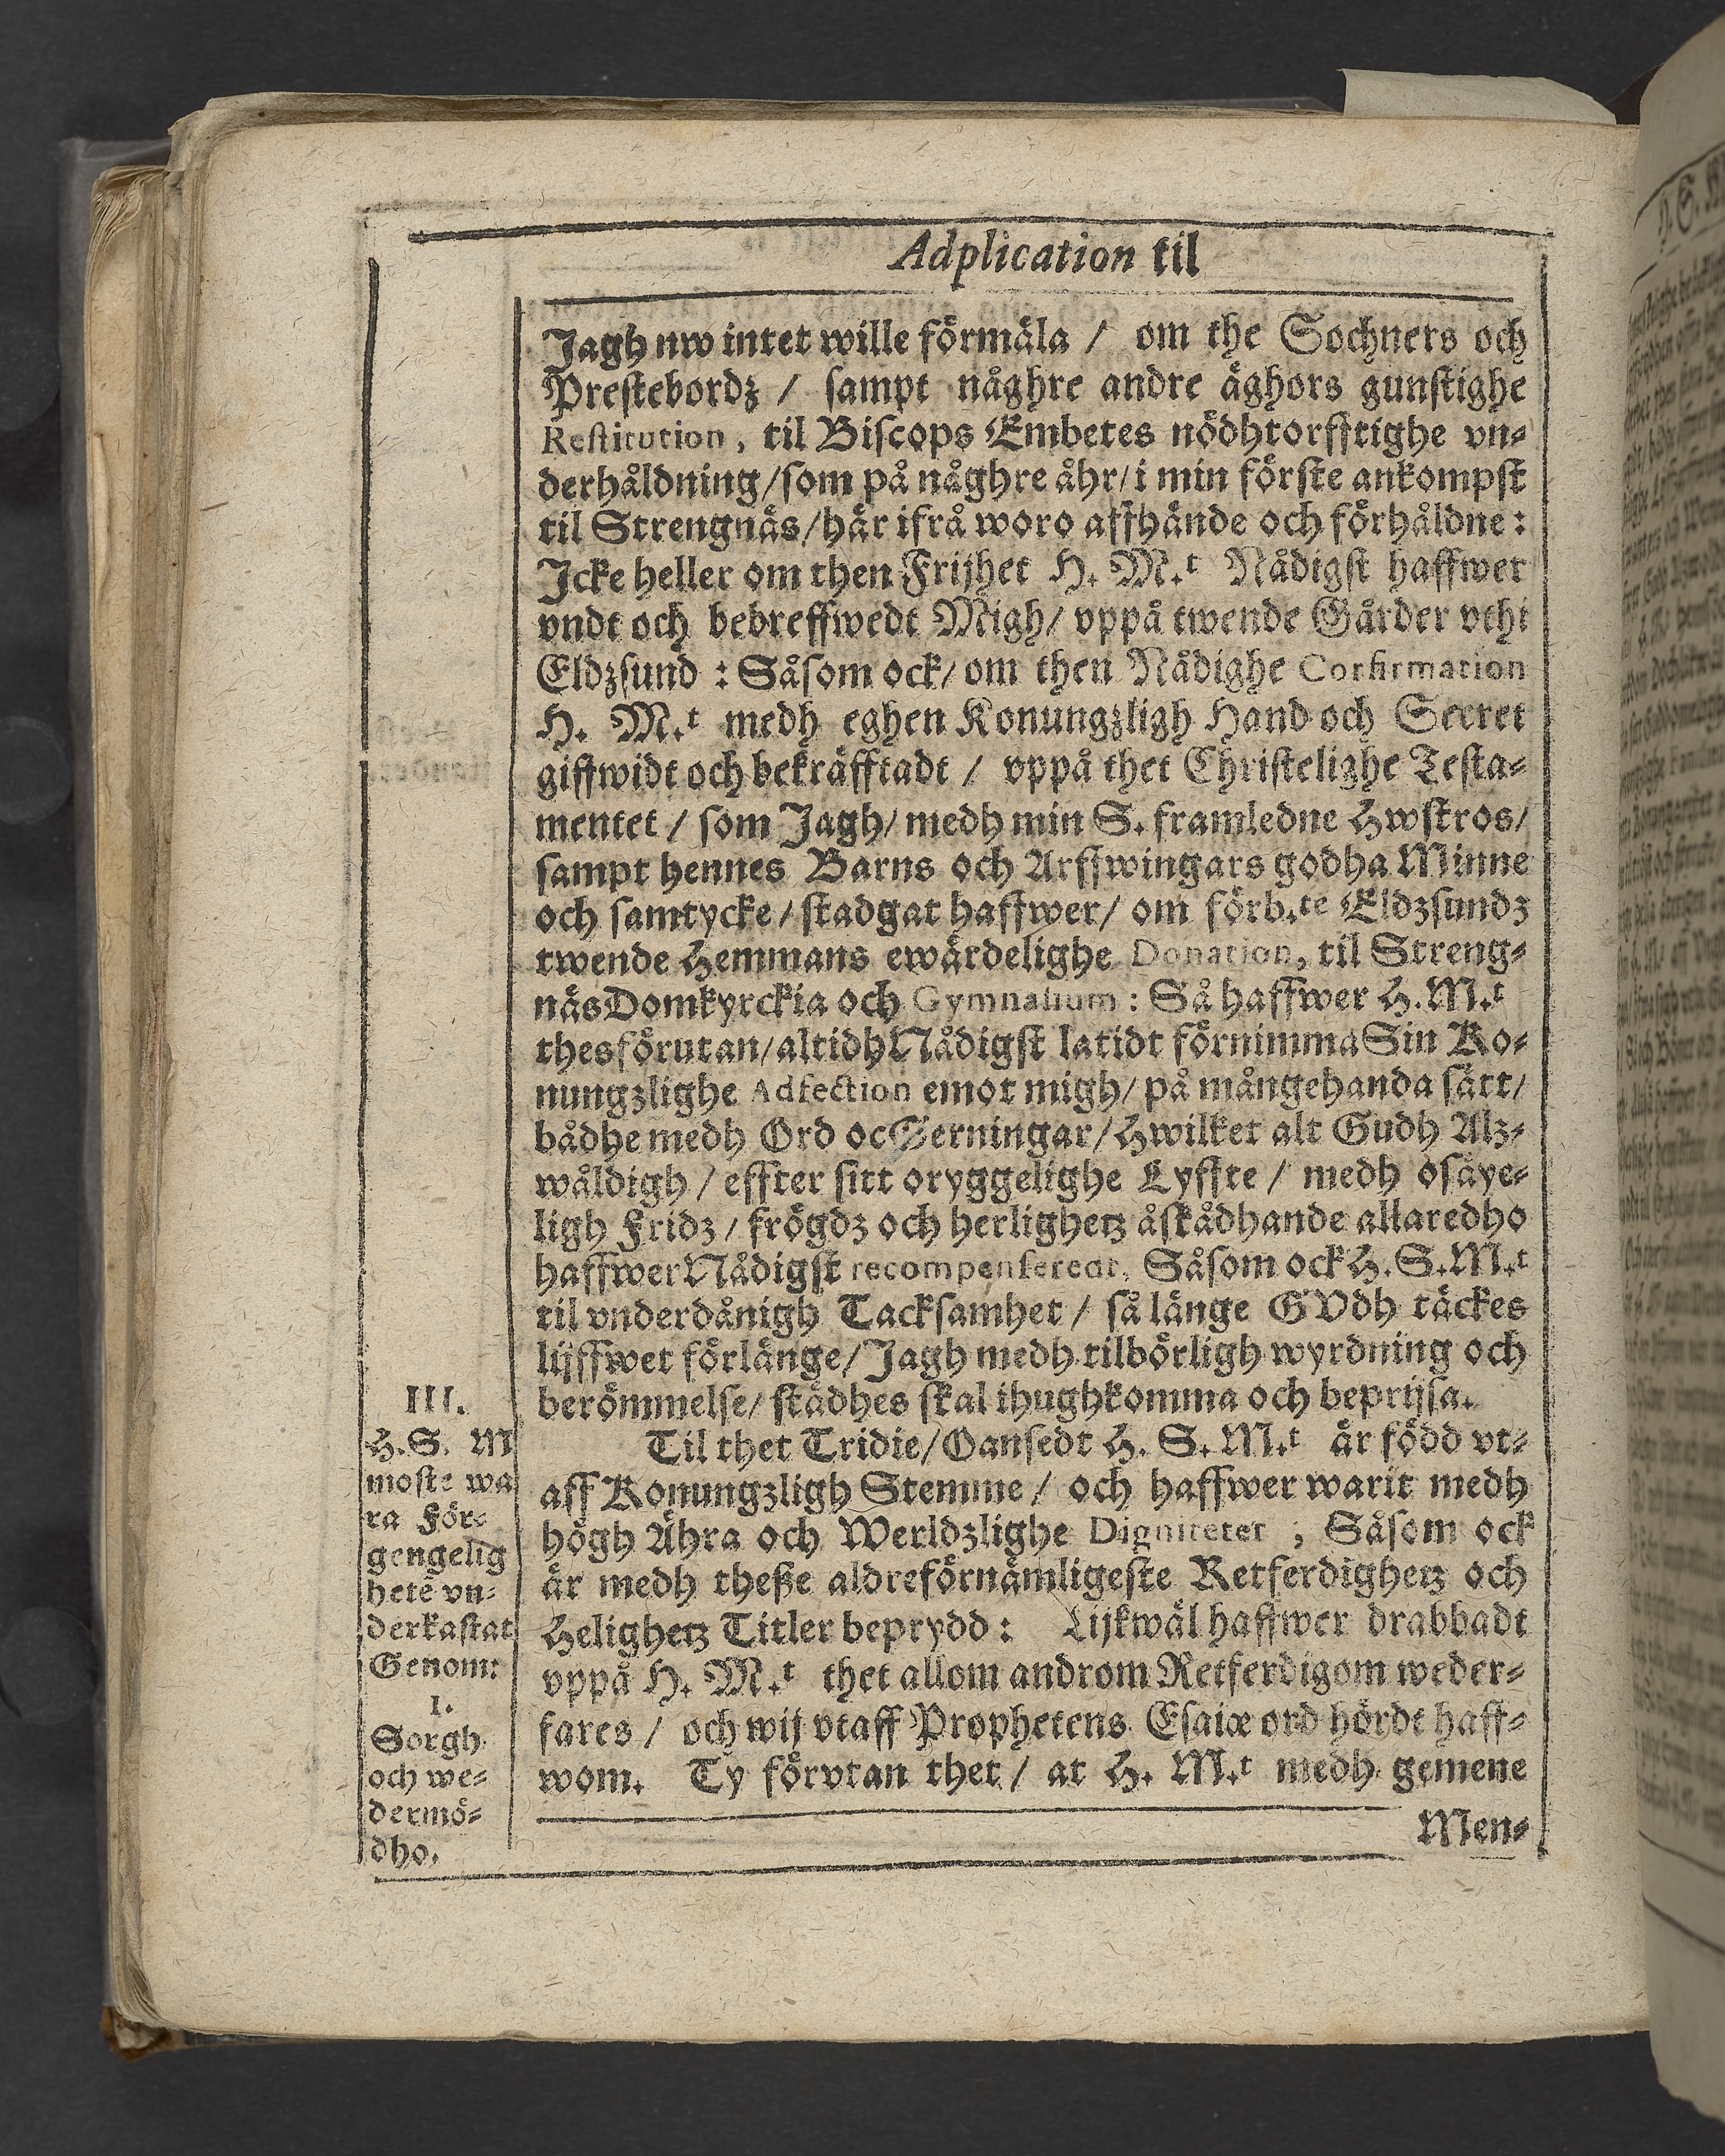 Adplication til
Jagh nw intet wille förmäla / om the Sochners och
Prestebordz / sampt någhre andre äghors gunstighe
Restitution, til Biscops Embetes nödhtorfftighe vn-
derhåldning/som på någhre åhr/i min förste ankompst
til Strengnäs/här ifrå woro affhände och förhåldne:
Jcke heller om then Frijhet H. M.t Nådigst haffwer
vndt och bebreffwedt Migh/ vppå twende Gårder vthi
Eldzsund : Såsom ock/ om then Nådighe Confirmation
H. M.t medh eghen Konungzligh Hand och Secret
giffwidt och bekräfftadt / vppå thet Christelighe Testa-
mentet / som Jagh/ medh min S. framledne Hwstros/
sampt hennes Barns och Arffwingars godha Minne
och samtycke/ stadgat haffwer/ om förb.te Eldzsundz
twende Hemmans ewärdelighe Donation, til Streng-
näs Domkyrckia och Gymnasium : Så haffwer H.M.t
thesförutan/altidh Nådigst latidt förnimma Sin Ko-
nungzlighe Adfection emot migh/ på mångehanda sätt/
bådhe medh Ord oc Gerningar/Hwilket alt Gudh Alz-
wåldigh / effter sitt oryggelighe Lyffte / medh osäye-
ligh Fridz / frögdz och herlighetz åskådhande allaredho
haffwer Nådigst recompenserat, Såsom ock H.S.M.t
til vnderdånigh Tacksamhet / så länge GVdh täckes
lijffwet förlänge/ Jagh medh tilbörligh wyrdning och
berömmelse/ städhes skal ihughkomma och beprijsa.
Til thet Tridie/Oansedt H. S. M.t är född vt-
aff Konungzligh Stemme / och haffwer warit medh
högh Ähra och Werldzlighe Digniteter ; Såsom ock
är medh theße aldreförnämligeste Retferdighetz och
Helighetz Titler beprydd : Lijkwäl haffwer drabbadt
vppå H. M.t thet allom androm Retferdigom weder-
fares / och wij vtaff Prophetens Esaiæ ord hördt haff-
wom. Ty förvtan thet / at H. M.t medh gemene
Men-
III.
H.S. M
moste wa
ra För-
gengelig
hetē vn-
derkastat
Genom:
I.
Sorgh
och we-
dermö-
dho.